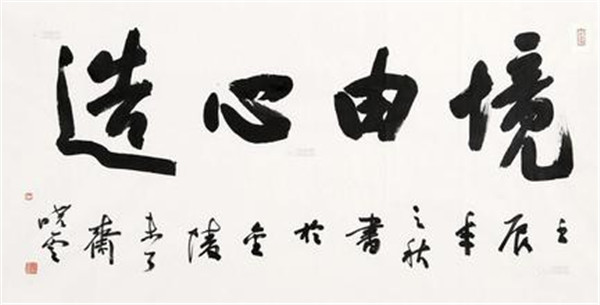 境由心造
壬辰年之秋書於金陵未了齋曉雲